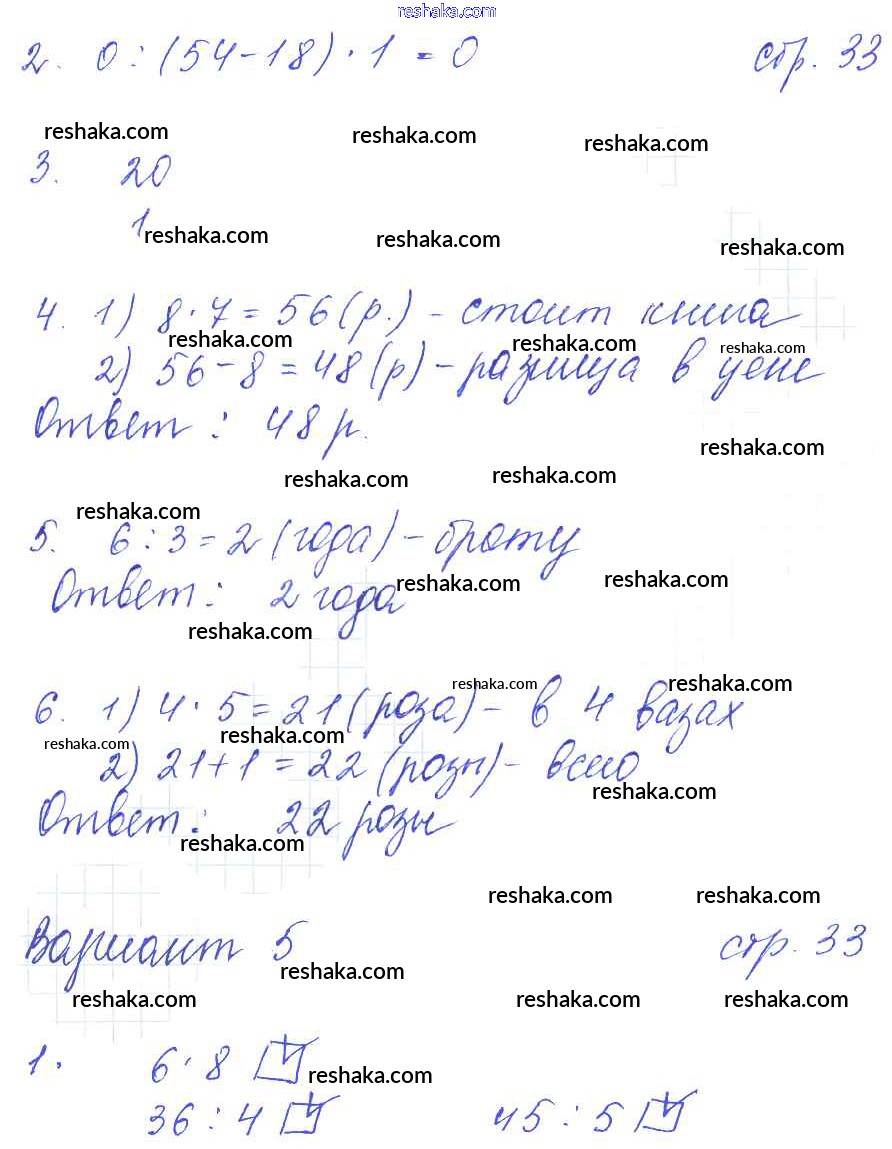 reshaka.com
2. 0 : (54 - 18) · 1 = 0 стр. 33
reshaka.com reshaka.com reshaka.com
3. 20
1
reshaka.com reshaka.com reshaka.com
4. 1) 8 · 7 = 56 (р.) - стоит книга
reshaka.com reshaka.com reshaka.com
2) 56 - 8 = 48 (р) - разница в цене
Ответ: 48 р.
reshaka.com
reshaka.com reshaka.com
reshaka.com
5. 6 : 3 = 2 (года) - брату
Ответ: 2 года
reshaka.com reshaka.com
reshaka.com
reshaka.com reshaka.com
6. 1) 4 · 5 = 21 (роза) - в 4 вазах
reshaka.com reshaka.com
2) 21 + 1 = 22 (розы) - всего
reshaka.com
Ответ: 22 розы
reshaka.com
reshaka.com reshaka.com
Вариант 5 стр. 33
reshaka.com
reshaka.com reshaka.com reshaka.com
1. 6 · 8
reshaka.com
36 : 4 45 : 5